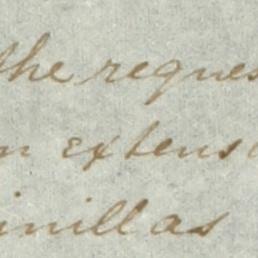 the reques
n extens
inillas